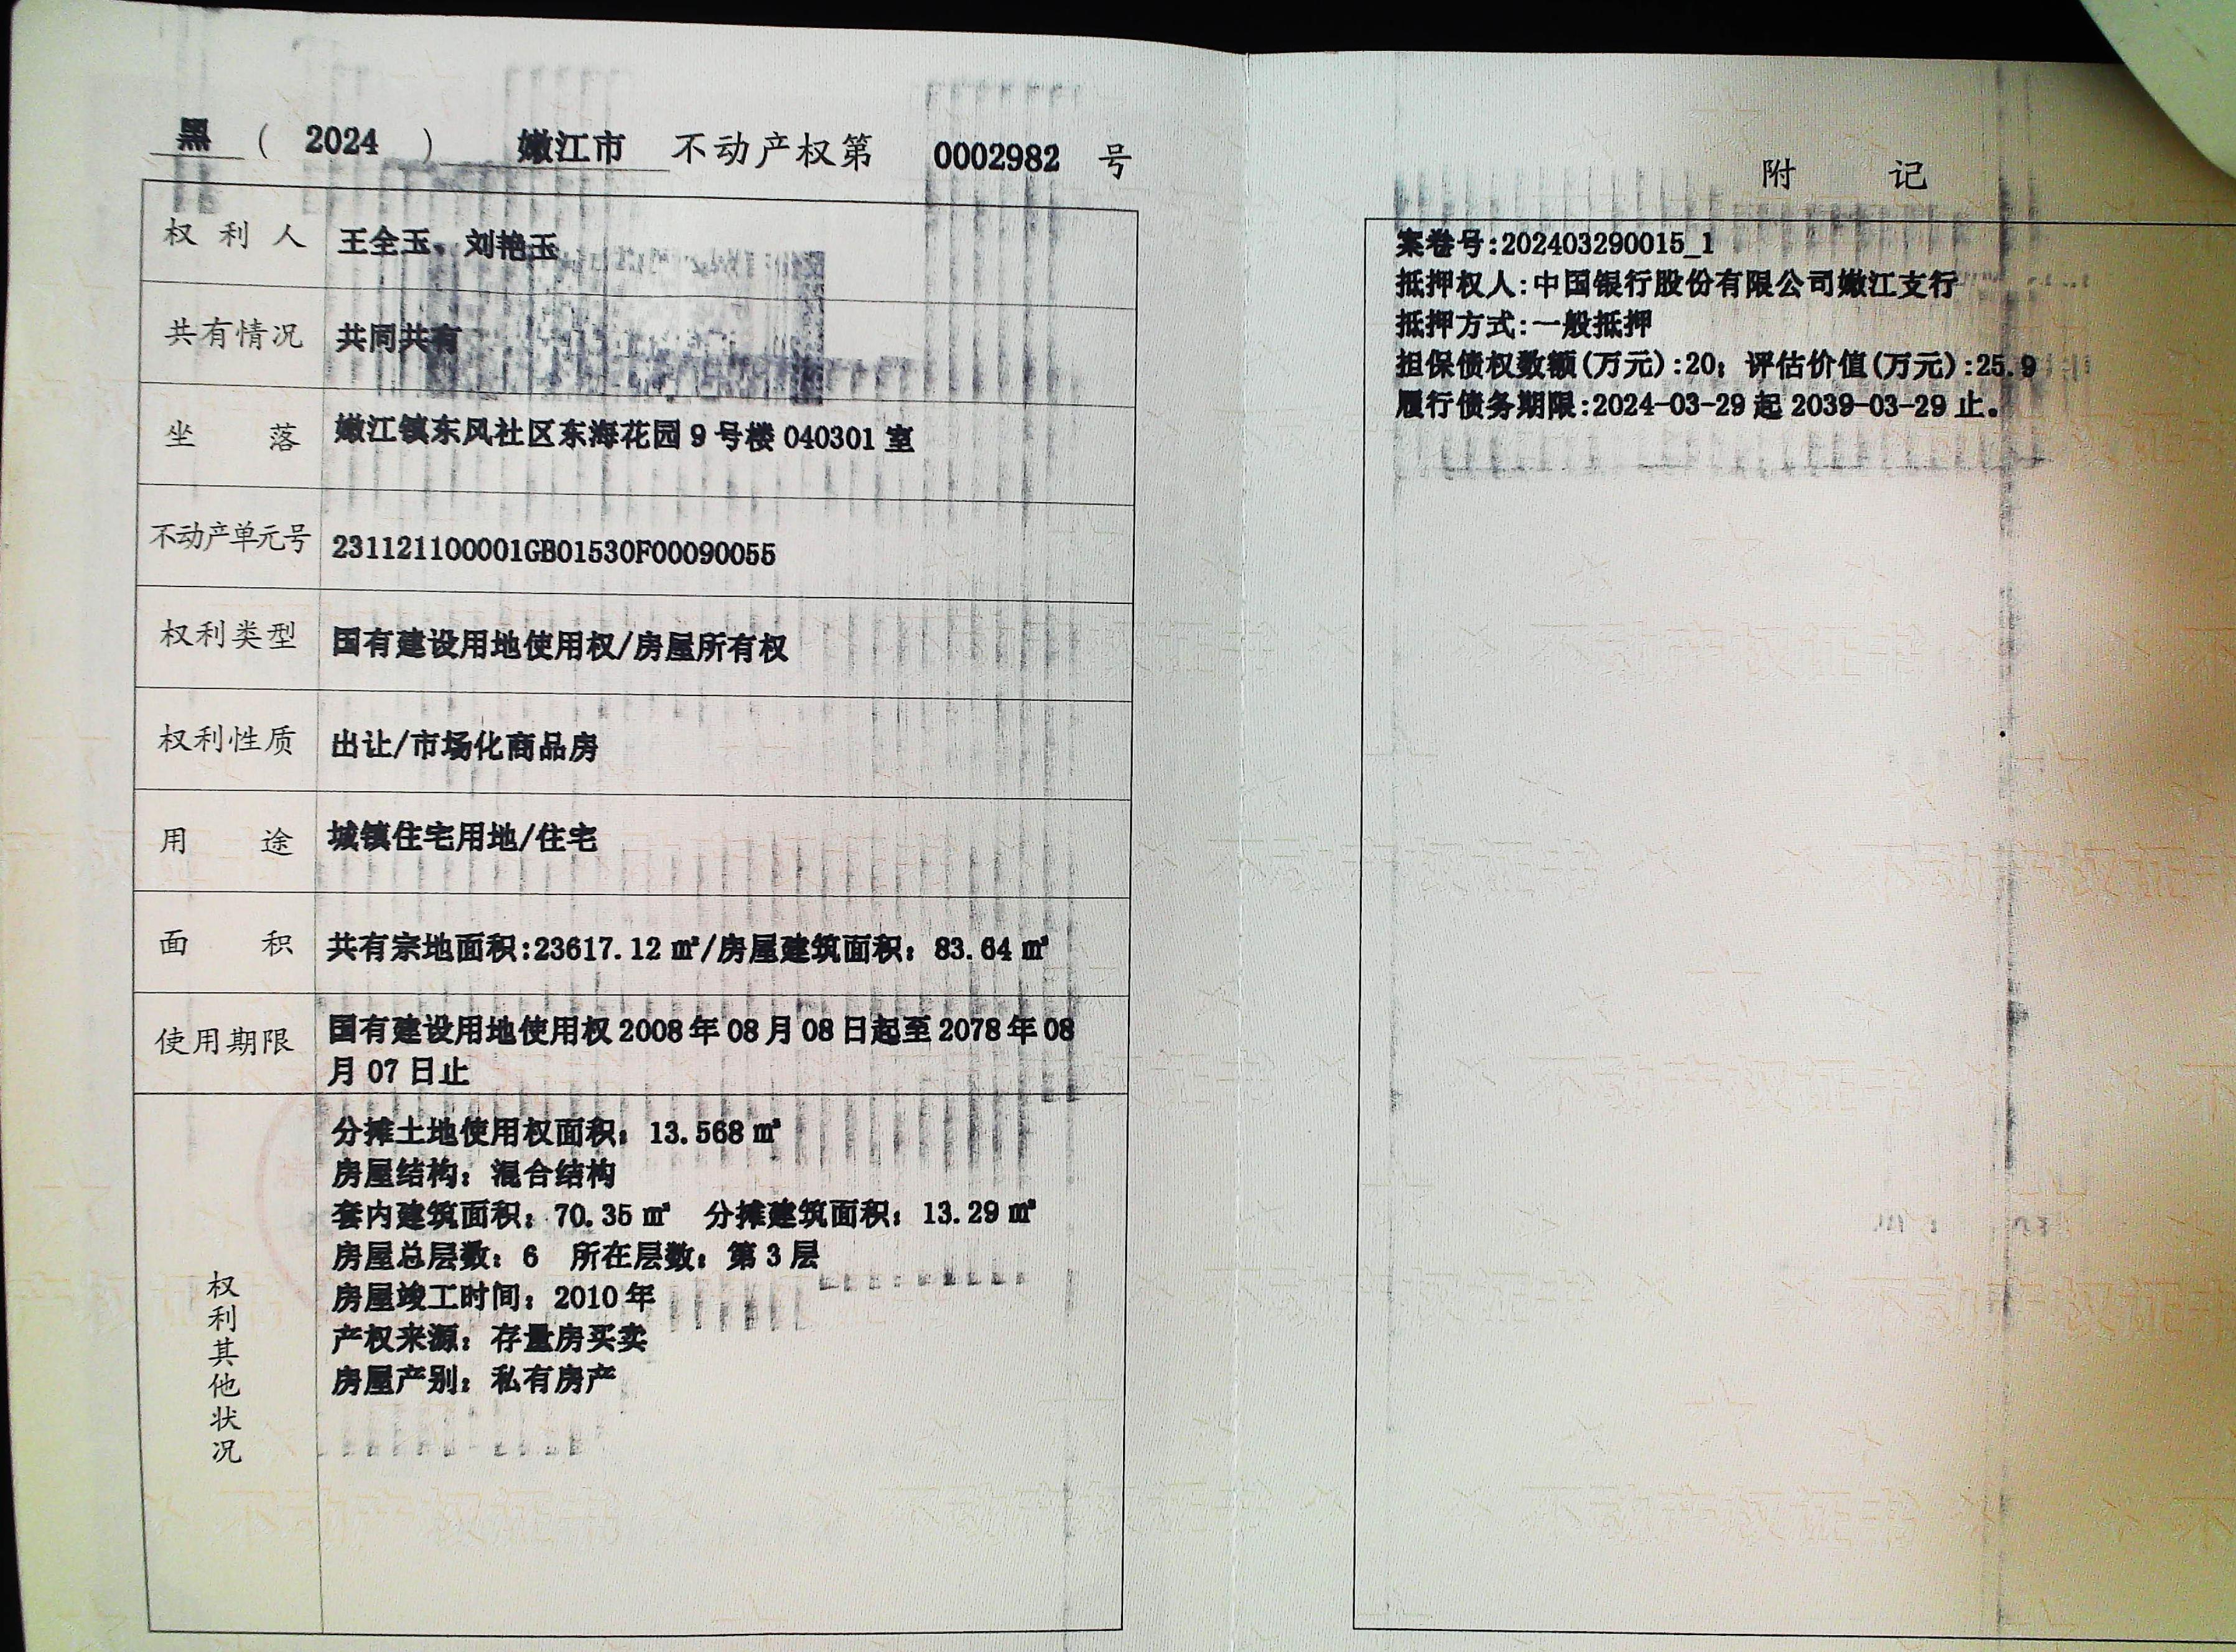 黑 ( 2024 ) 嫩江市 不动产权第 0002982 号
权利人 王全玉、刘艳玉
共有情况 共同共有
坐落 嫩江镇东风社区东海花园 9 号楼 040301 室
不动产单元号 231121100001GB01530F00090055
权利类型 国有建设用地使用权/房屋所有权
权利性质 出让/市场化商品房
用途 城镇住宅用地/住宅
面积 共有宗地面积:23617.12 ㎡/房屋建筑面积：83.64 ㎡
使用期限 国有建设用地使用权 2008 年 08 月 08 日起至 2078 年 08
月 07 日止
权利其他状况
分摊土地使用权面积：13.568 ㎡
房屋结构：混合结构
套内建筑面积：70.35 ㎡ 分摊建筑面积：13.29 ㎡
房屋总层数：6 所在层数：第 3 层
房屋竣工时间：2010 年
产权来源：存量房买卖
房屋产别：私有房产
附记
案卷号:202403290015_1
抵押权人:中国银行股份有限公司嫩江支行
抵押方式:一般抵押
担保债权数额(万元):20；评估价值(万元):25.9
履行债务期限:2024-03-29 起 2039-03-29 止。